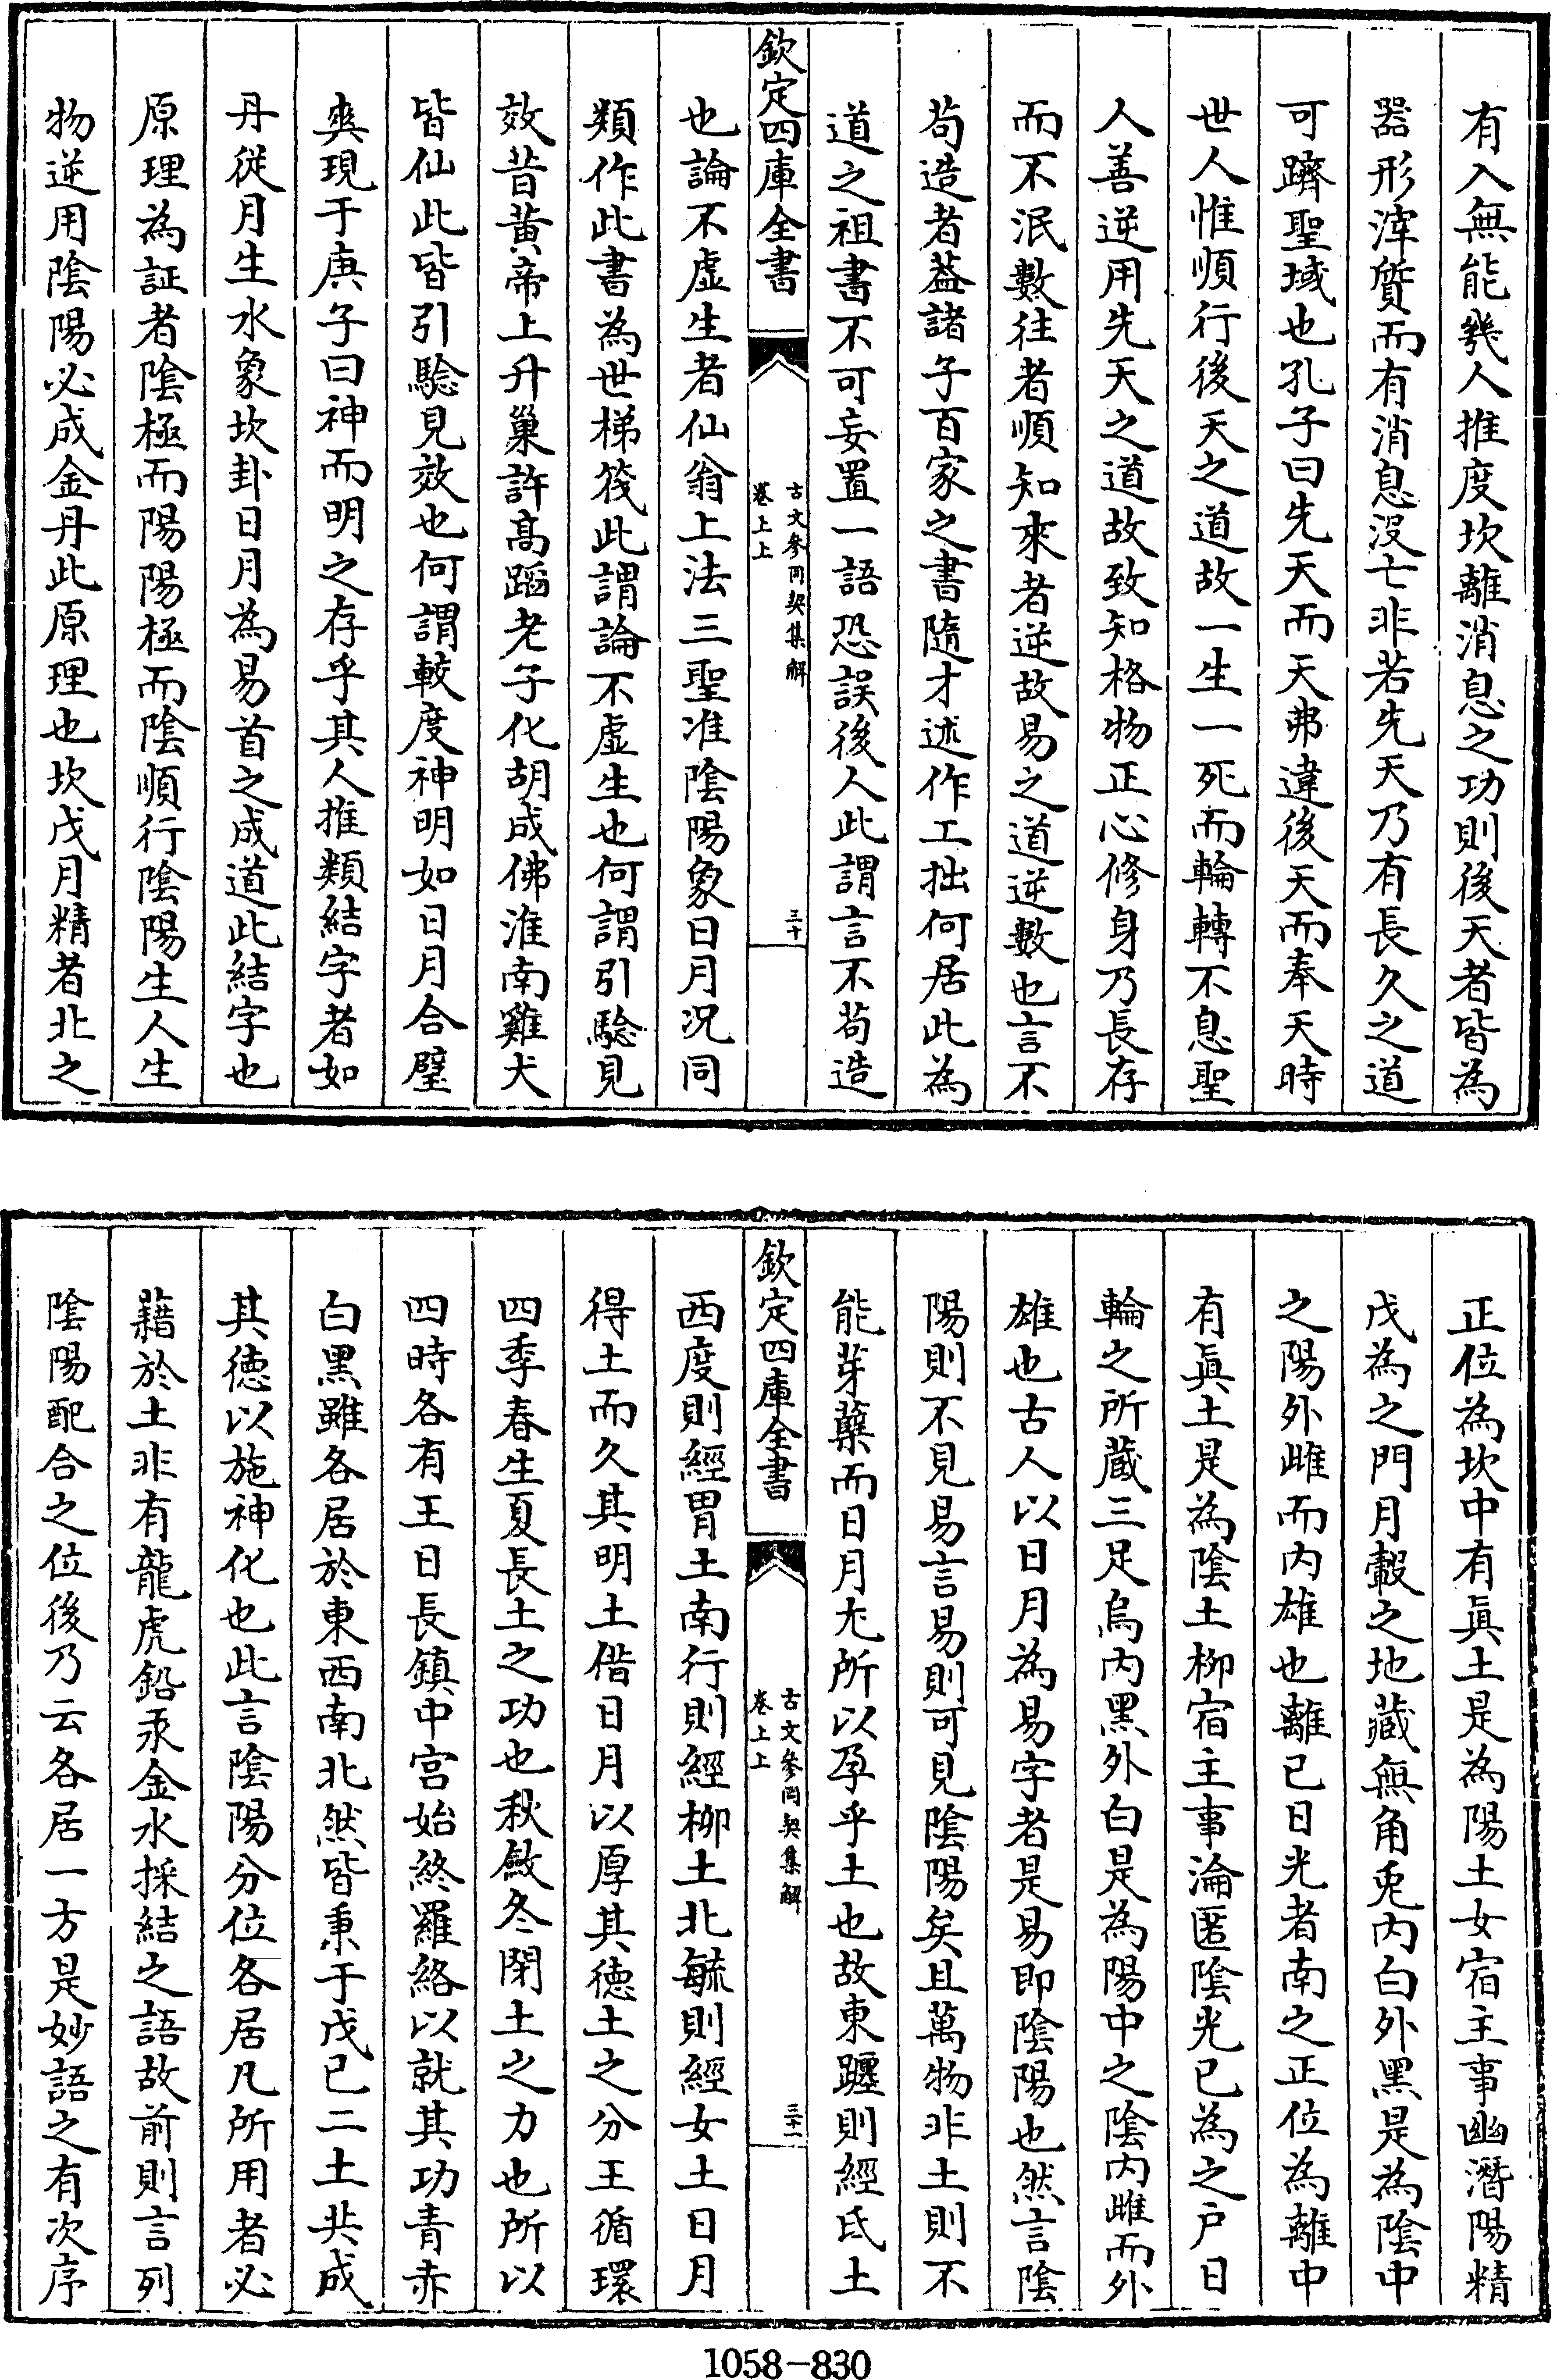 有入無能幾人推度坎離消息之功則後天者皆為
器形滓質而有消息沒亡非若先天乃有長久之道
可躋聖域也孔子曰先天而天弗違後天而奉天時
世人惟順行後天之道故一生一死而輪轉不息聖
人善逆用先天之道故致知格物正心修身乃長存
而不泯數往者順知來者逆故易之道逆數也言不
苟造者葢諸子百家之書隨才述作工拙何居此為
道之祖書不可妄置一語恐誤後人此謂言不苟造
欽定四庫全書
古文參同契集解
卷上上
三十
也論不虛生者仙翁上法三聖准陰陽象日月況同
類作此書為世梯筏此謂論不虛生也何謂引驗見
效昔黃帝上升巢許高蹈老子化胡成佛淮南雞犬
皆仙此皆引驗見效也何謂較度神明如日月合璧
爽現于庚子曰神而明之存乎其人推類結字者如
丹從月生水象坎卦日月為易首之成道此結字也
原理為証者陰極而陽陽極而陰順行陰陽生人生
物逆用陰陽必成金丹此原理也坎戊月精者北之
正位為坎中有眞土是為陽土女宿主事幽潛陽精
戊為之門月轂之地藏無角兎内白外黑是為陰中
之陽外雌而内雄也離已日光者南之正位為離中
有眞土是為陰土柳宿主事淪匿陰光已為之户日
輪之所蔵三足烏内黑外白是為陽中之陰内雌而外
雄也古人以日月為易字者是易即陰陽也然言陰
陽則不見易言易則可見陰陽矣且萬物非土則不
能芽蘖而日月尤所以孕乎土也故東躔則經氐土
欽定四庫全書
古文參同契集解
卷上上
三十一
西度則經胃土南行則經柳土北毓則經女土日月
得土而久其明土偕日月以厚其徳土之分王循環
四季春生夏長土之功也秋斂冬閉土之力也所以
四時各有王日長鎮中宫始終羅絡以就其功青赤
白黑雖各居於東西南北然皆秉于戊已二土共成
其徳以施神化也此言陰陽分位各居凡所用者必
藉於土非有龍虎鉛汞金水採結之語故前則言列
陰陽配合之位後乃云各居一方是妙語之有次序
1058-830